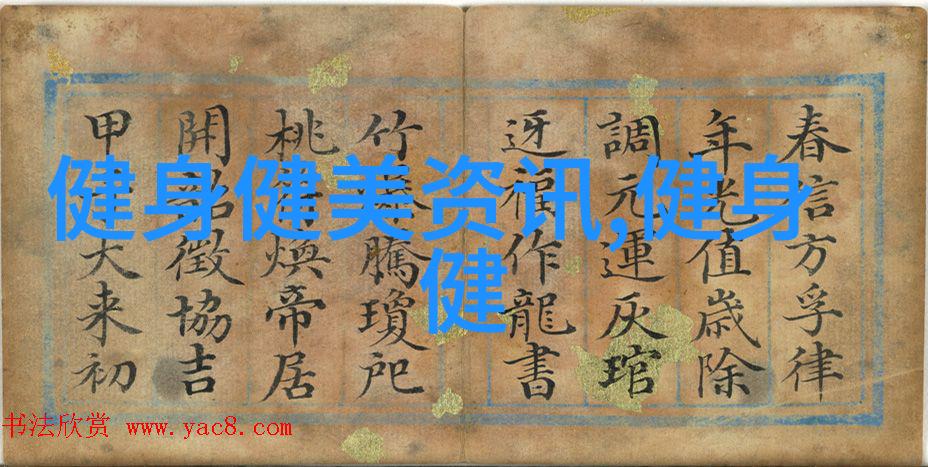 健身健美资讯,健身
健
春信方孚律
年光值歲除
調元運灰琯
迓福作龍書
竹騰瓊卮
桃煥帝居
開徵協吉
甲大来初
书法欣赏 www.yac8.com